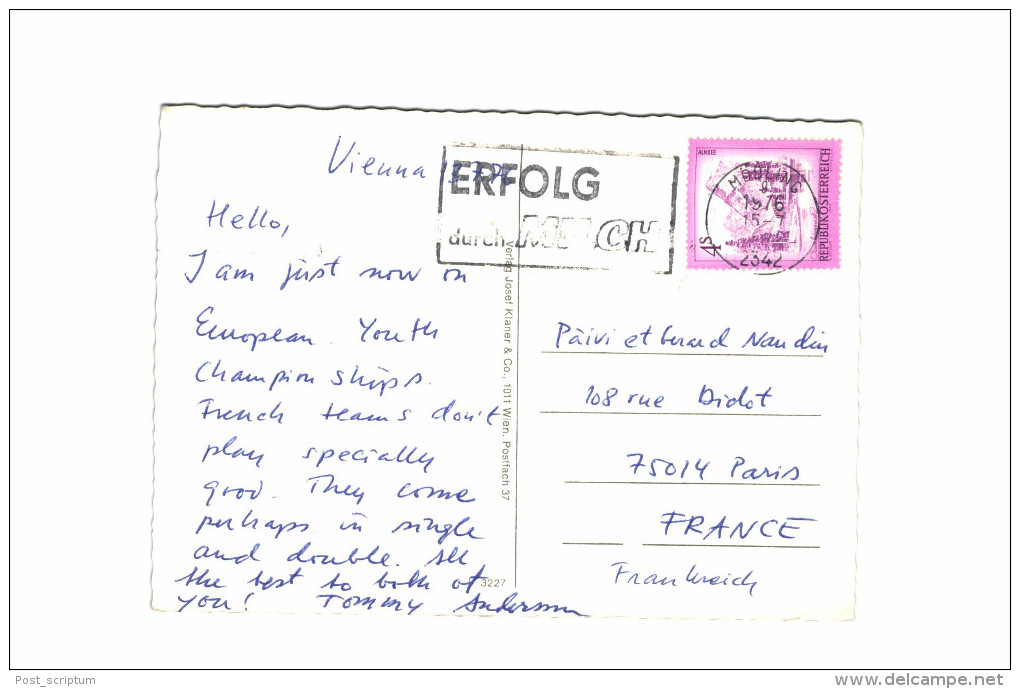 Vienna 13.7.76
ERFOLG
durch MILCH
ALMSEE
4S
REPUBLIK ÖSTERREICH
MÖDLING
1976
15-7
2342
Hello,
I am just now on
European Youth
Championships.
French teams don't
play specially
good. They come
perhaps in single
and double. All
the best to both of
you! Tommy Andersson
Verlag Josef Klaner & Co., 1011 Wien, Postfach 37
3227
Päivi et Gerard Naudin
108 rue Didot
75014 Paris
FRANCE
Frankreich
Post_scriptum
delcampe.net